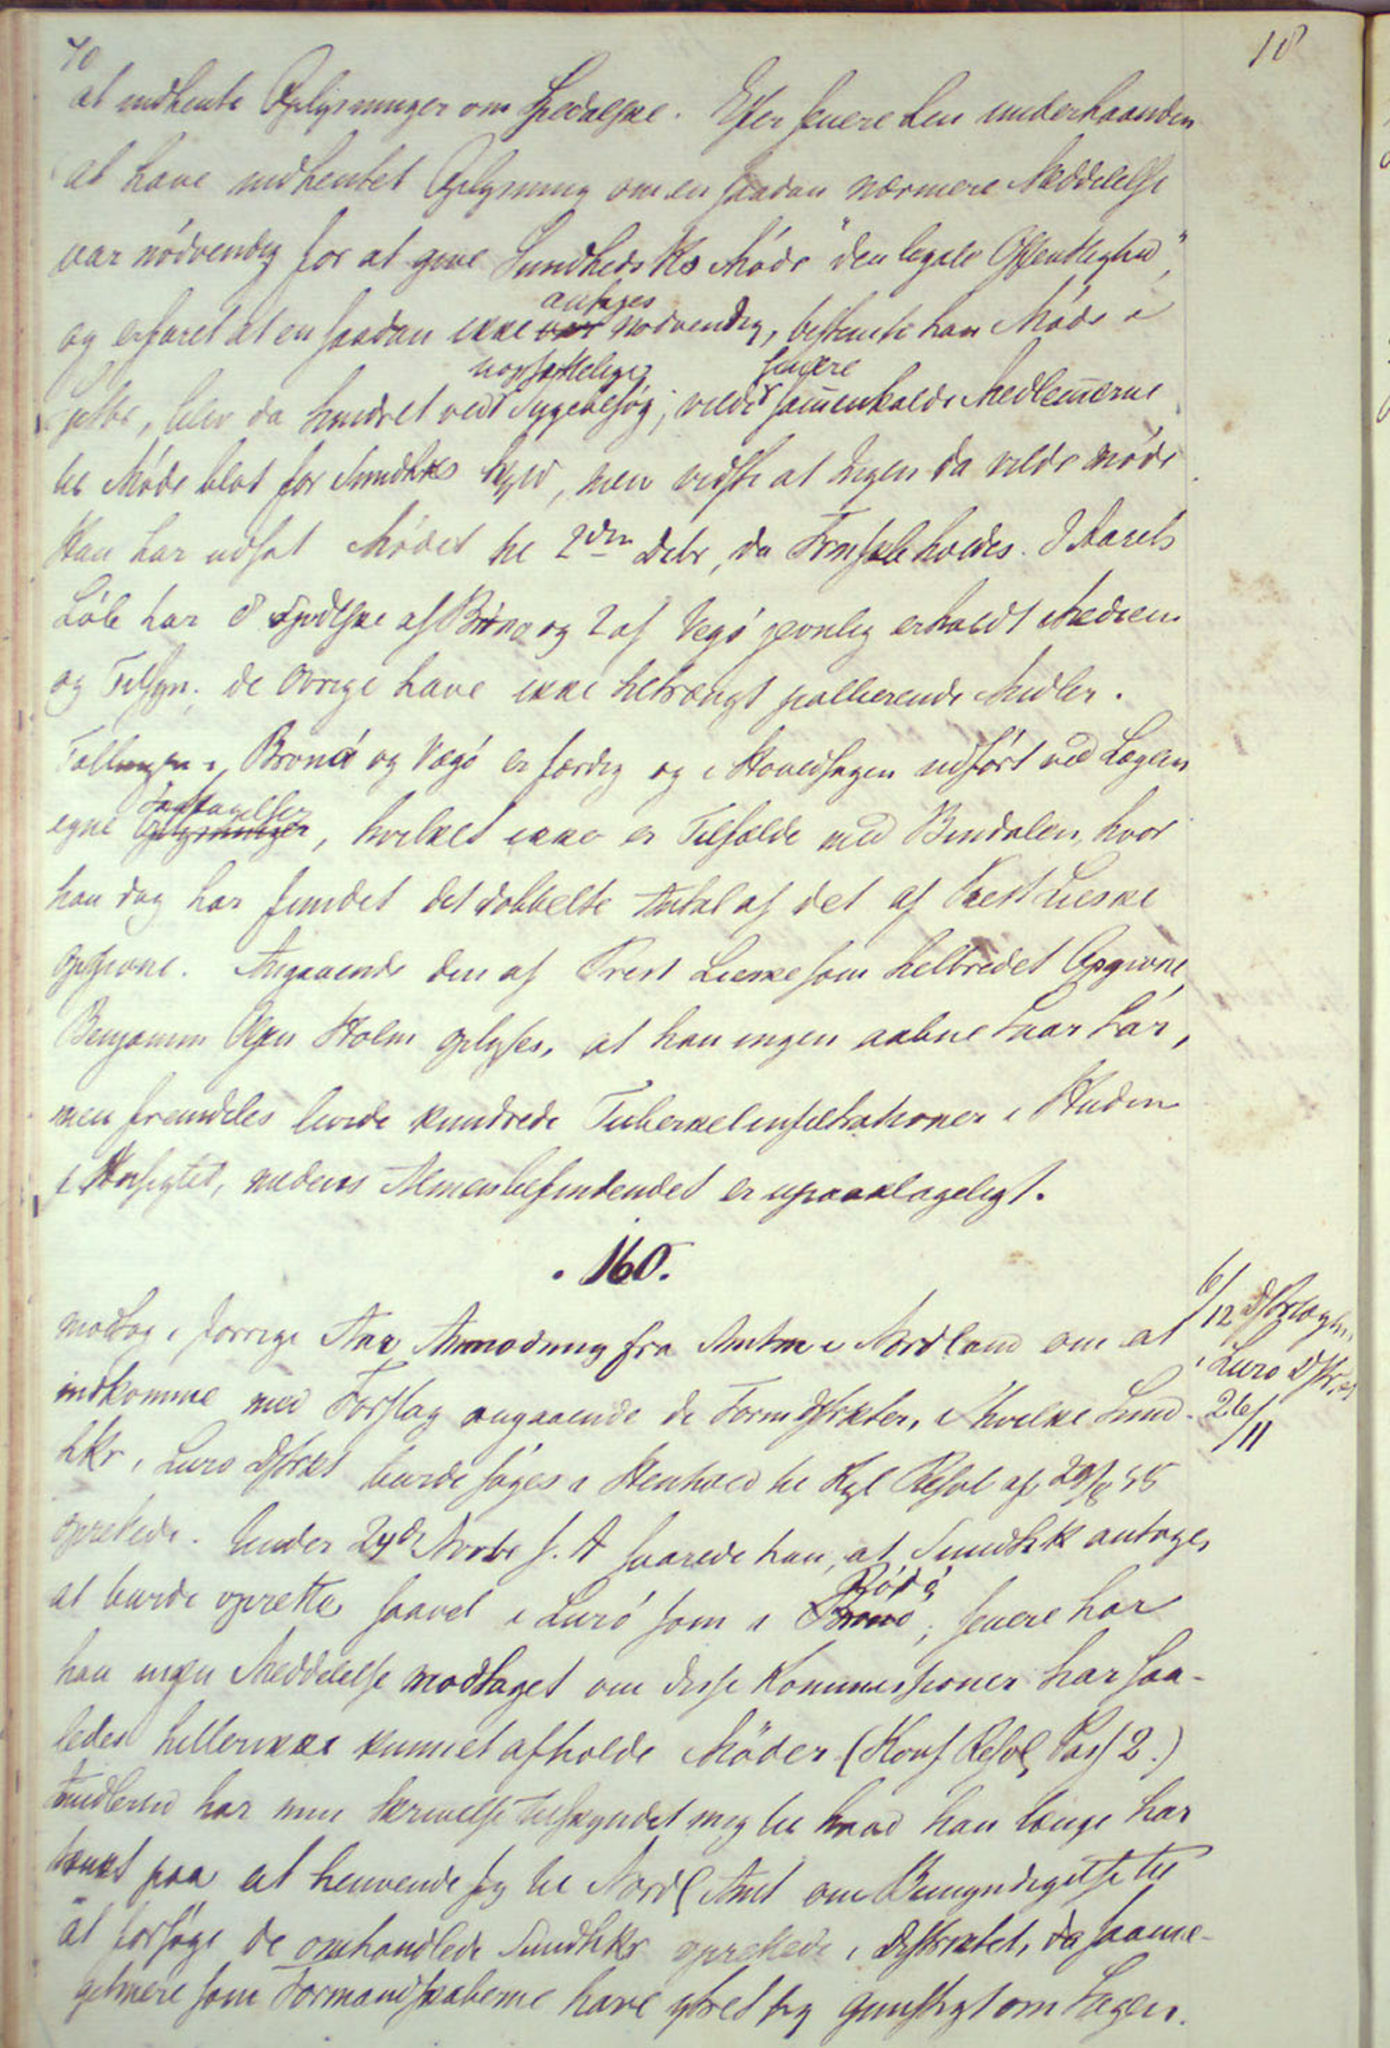 70
18
at indhente Oplysninger om Spedalske. Efter senere hen underhaanden
at have indhentet Oplysning om en saadan nærmere Meddelelse
var nødvendig for at give Sundheds Ks Møde "den legale Offentlighed",
og erfaret at en saadan ikke var antages nødvendig, bestemte han Møde i
blev da hindret ved uopsættelige Sygebesøg; vilde senere sammenkalde Medlemmerne
til Møde blot for Sundhks Skyld, men vidste at Ingen da vilde møde
Han har udsat Mødet til 2den Debr, da holdes. I Aarets
Løb har 8 Spedlske af Brønø og 2 af Vegø jevnlig erholdt Medicin
og Tilsyn; de øvrige have ikke tiltrængt pallierende Midler.
Tællingen i Brønø og Vegø er færdig og i Hovedsagen udført ved Lægens
egne Oplysninger Iagttagelser, hvilket ikke er Tilfælde med Bindalen, hvor
han dog har fundet det dobbelte Antal af det af Prest Lieske
opgivne. Angaaende den af Prest Lieske som helbredet Opgivne,
Benjamin Olsen Holm oplyses, at han ingen aabne Saar har,
men fremdeles hundrede Tuberkelinfiltrationer i Huden
i Ansigtet, medens Almenbefindendet er upaaklageligt.
160.
modtog i forrige Aar Anmodning fra Amtm i Nordland om at
indkomme med Forslag angaaende de Formdstrkter, i hvilke Sund-
hkr i Lurø Dstrkt burde søges i Henhold til Kgl Resol af 29/8 58
oprettede. Under 24de Novbr f. A svarede han, at Sundhk antoges
at burde oprettes saavel i Lurø som i Brønø Rødø; senere har
han ingen Meddelelse modtaget om disse Kommissioner har saa-
ledes heller ikke kunnet afholde Møder (Konf Resol Pass 2.)
Imidlertid har min Skrivelse tilskyndet mig til hvad han længe har
tænkt paa at henvende sig til Nordl Amt om Bemyndigelse til
at forsøge de omhandlede Sundhkr oprettede i Distriktet, da saame-
getmere som Formandskaberne have ytret sig gunstigt om Sagen.
6/12 Dstrlægen
i Lurø Dstrkt
26/11